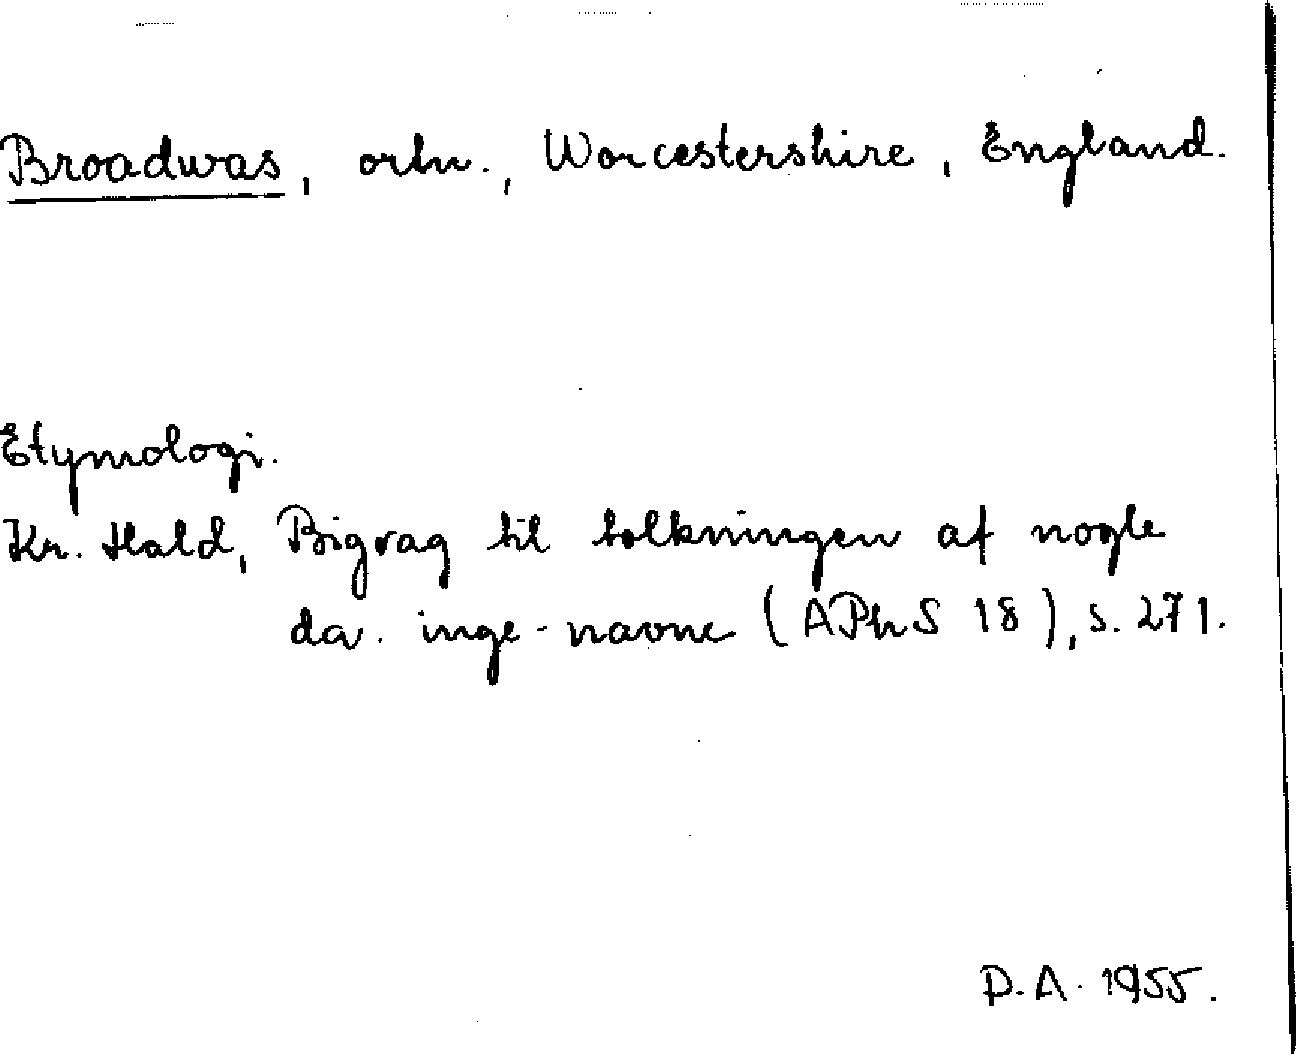 Broadwas, ortn., Worcestershire, England.
Etymologi.
Kr. Hald, Bigrag til tolkningen af nogle
da. inge-navne (APhS 18), s. 271.
P.A. 1955.